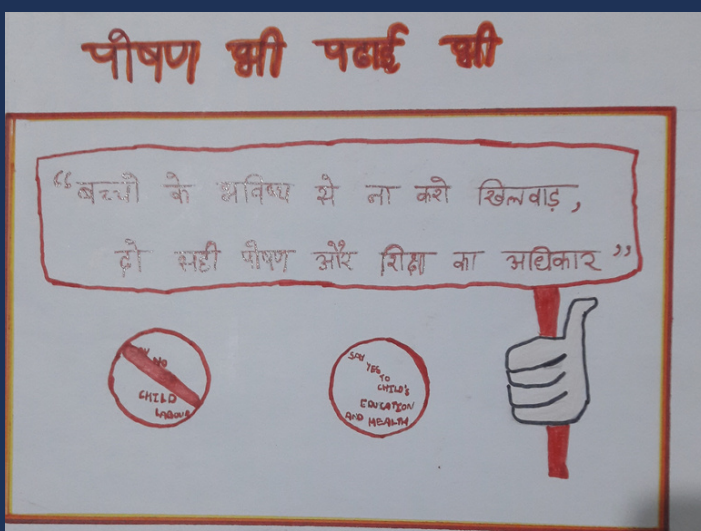 पोषण भी पढाई भी
“बच्चो के भविष्य से ना करो खिलवाड़,
दो सही पोषण और शिक्षा का अधिकार”
SAY NO
CHILD
LABOUR
SAY
YES
TO
CHILD'S
EDUCATION
AND HEALTH